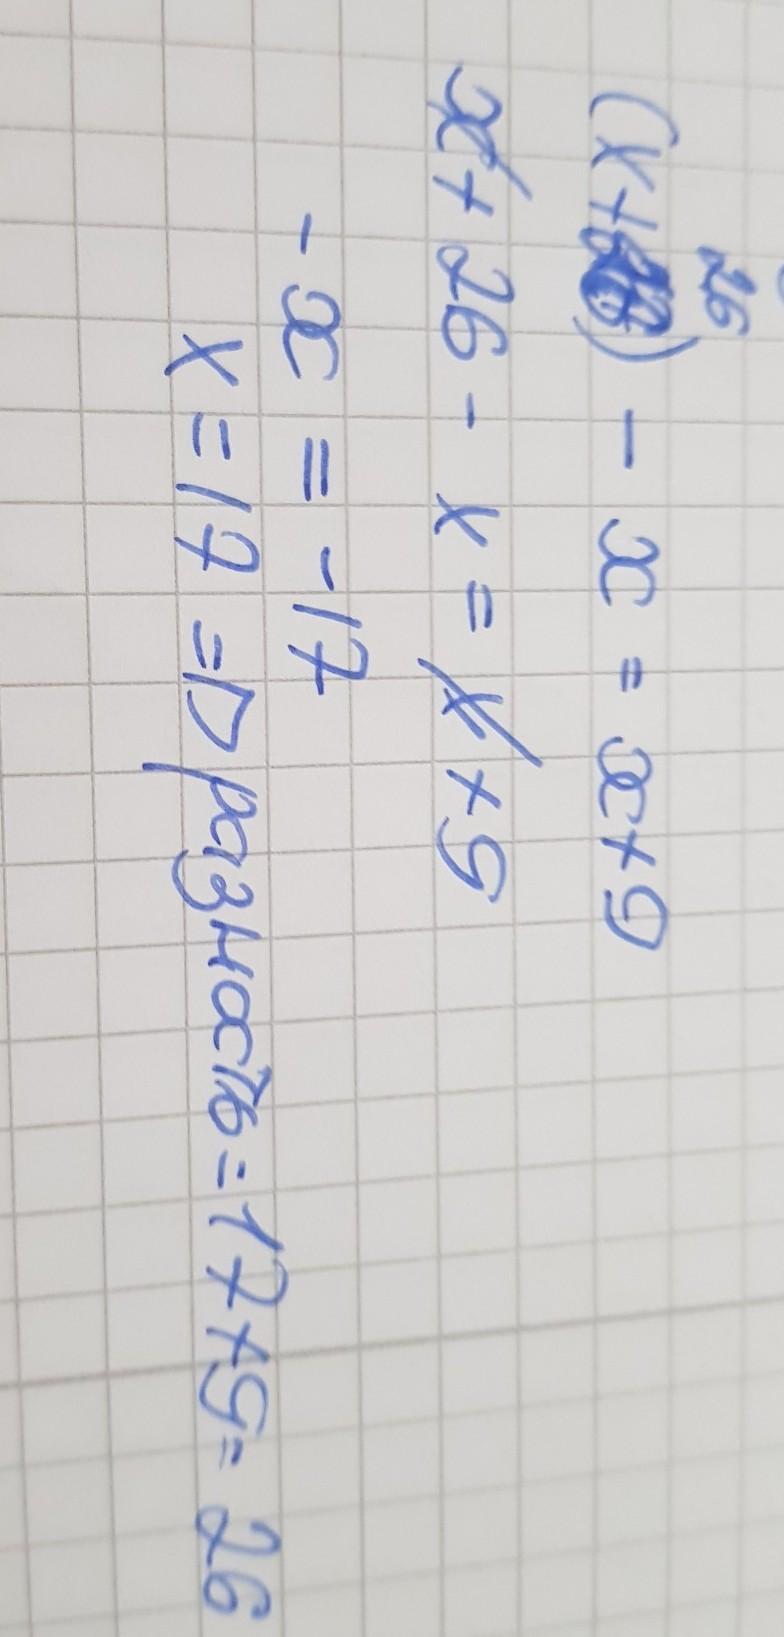 26
(x+) - x = x+9
x + 26 - x = x + 9
- x = -17
x = 17 => разность = 17+9 = 26